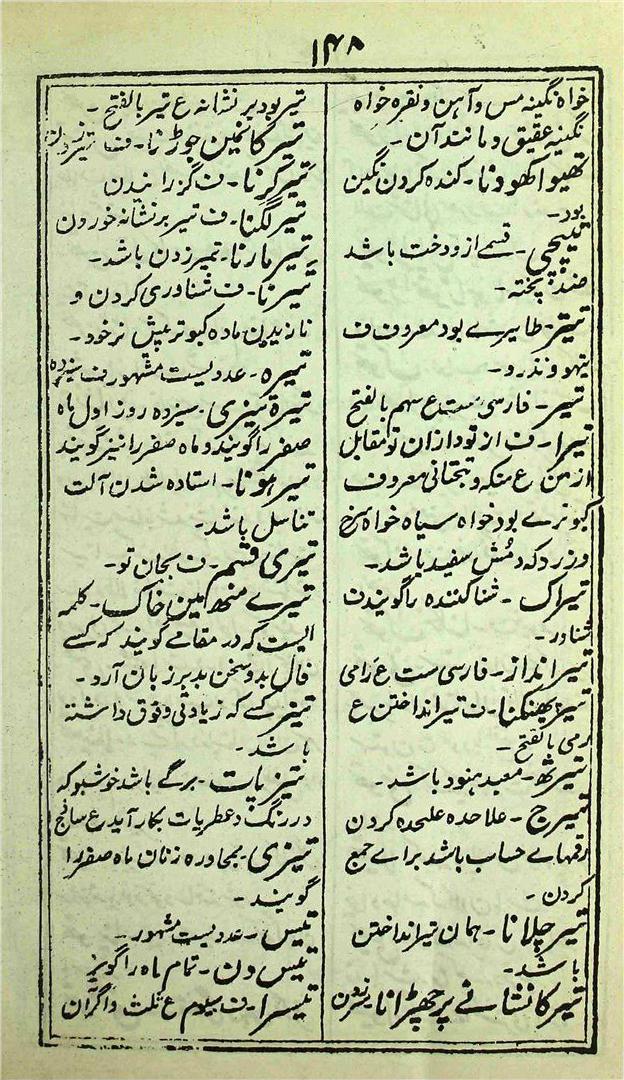 ۱۴۸
خواه نگینه مس و آهن و نقره خواه
نگینه عقیق و مانند آن -
تھیوا کھودنا - کنده کردن نگین
بود -
تیپچی - قسمے از دوخت باشد
ضد پخته -
تیتر - طایرے بود معروف ف
تیهو و نذرو -
تیر - فارسی ست ع سهم بالفتح
تیرا - ف از تو و ازان تو مقابل
از من ع متکه و بتحتانی معروف
کبوترے بود خواه سیاه خواه سرخ
و زرد که دمش سفید باشد -
تیراک - شناکننده را گویند ف
شناور -
تیرانداز - فارسی ست ع رامی
تیر پھینکنا - ف تیر انداختن ع
رمی بالفتح -
تیرتھ - معبد هنود باشد -
تیرج - علاحده علیحده کردن
رقمهاے حساب باشد براے جمع
کردن -
تیر چلانا - همان تیر انداختن
باشد -
تیر کا نشانے پر چھڑانا تیر زدن
تیر بود بر نشانه ع تیر بالفتح -
تیر کا نمین جوڑنا - ف تیر زدن
تیر کرنا - ف گزراندن
تیر لگنا - ف تیر بر نشانه خوردن
تیر مارنا - تیر زدن باشد -
تیرنا - ف شناوری کردن و
نازیدن ماده کبوتر پیش نر خود -
تیره - عددیست مشهور ف سیزده
تیره تیزی - سیزده روز اول ماه
صفر را گویند و ماه صفر را نیز گویند
تیر هونا - استاده شدن آلت
تناسل باشد -
تیری قسم - ف بجان تو -
تیرے منھ مین خاک - کلمه
ایست که در مقامے گویند که کسے
فال بد و سخن بد بر زبان آرد -
تیز کسے که زیادتی و فوق داشته
باشد -
تیزپات - برگے باشد خوشبو که
در رنگ و عطریات بکار آید ع ساذج
تیزی - بمحاوره زنان ماه صفر را
گویند -
تیس - عددیست مشهور -
تیس دن - تمام ماه را گویند
تیسرا - ف سیوم ع ثلث و اگر آن